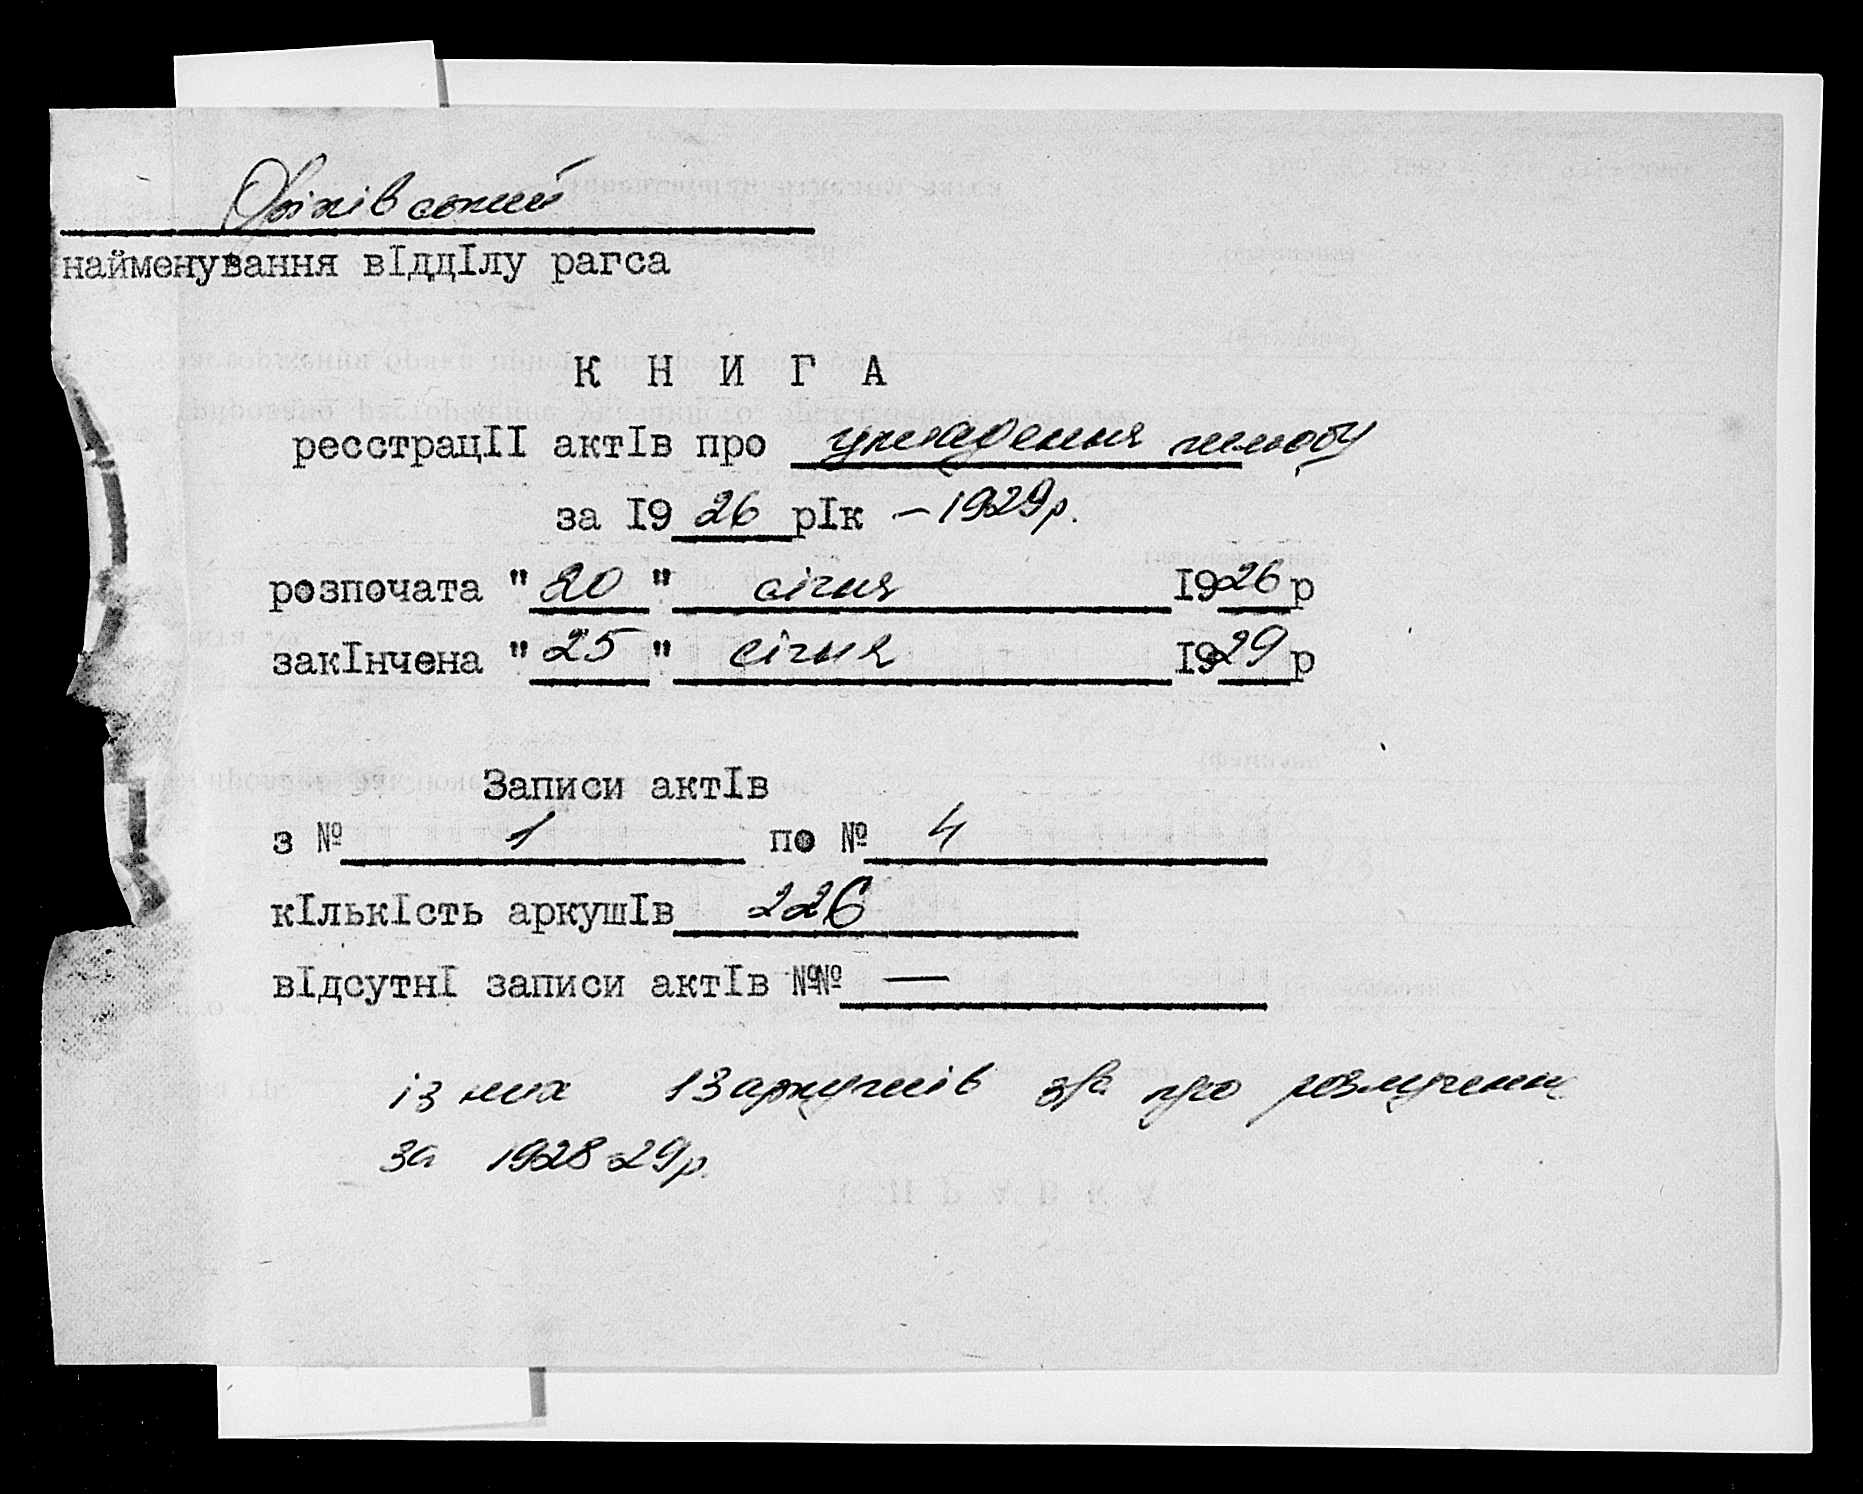 Оріхівський
найменування вІддІлу рагса
К Н И Г А
реєстрацІІ актІв про укладення шлюбу
за І9 26 рІк – 1929 р.
розпочата " 20 " січня І926 р
закІнчена " 25 " січня І929 р
Записи актІв
з № 1 по № 4
кІлькІсть аркушІв 226
вІдсутнІ записи актІв №№ —
із них 13 аркушів з/а про розлучення
за 1928-29 р.